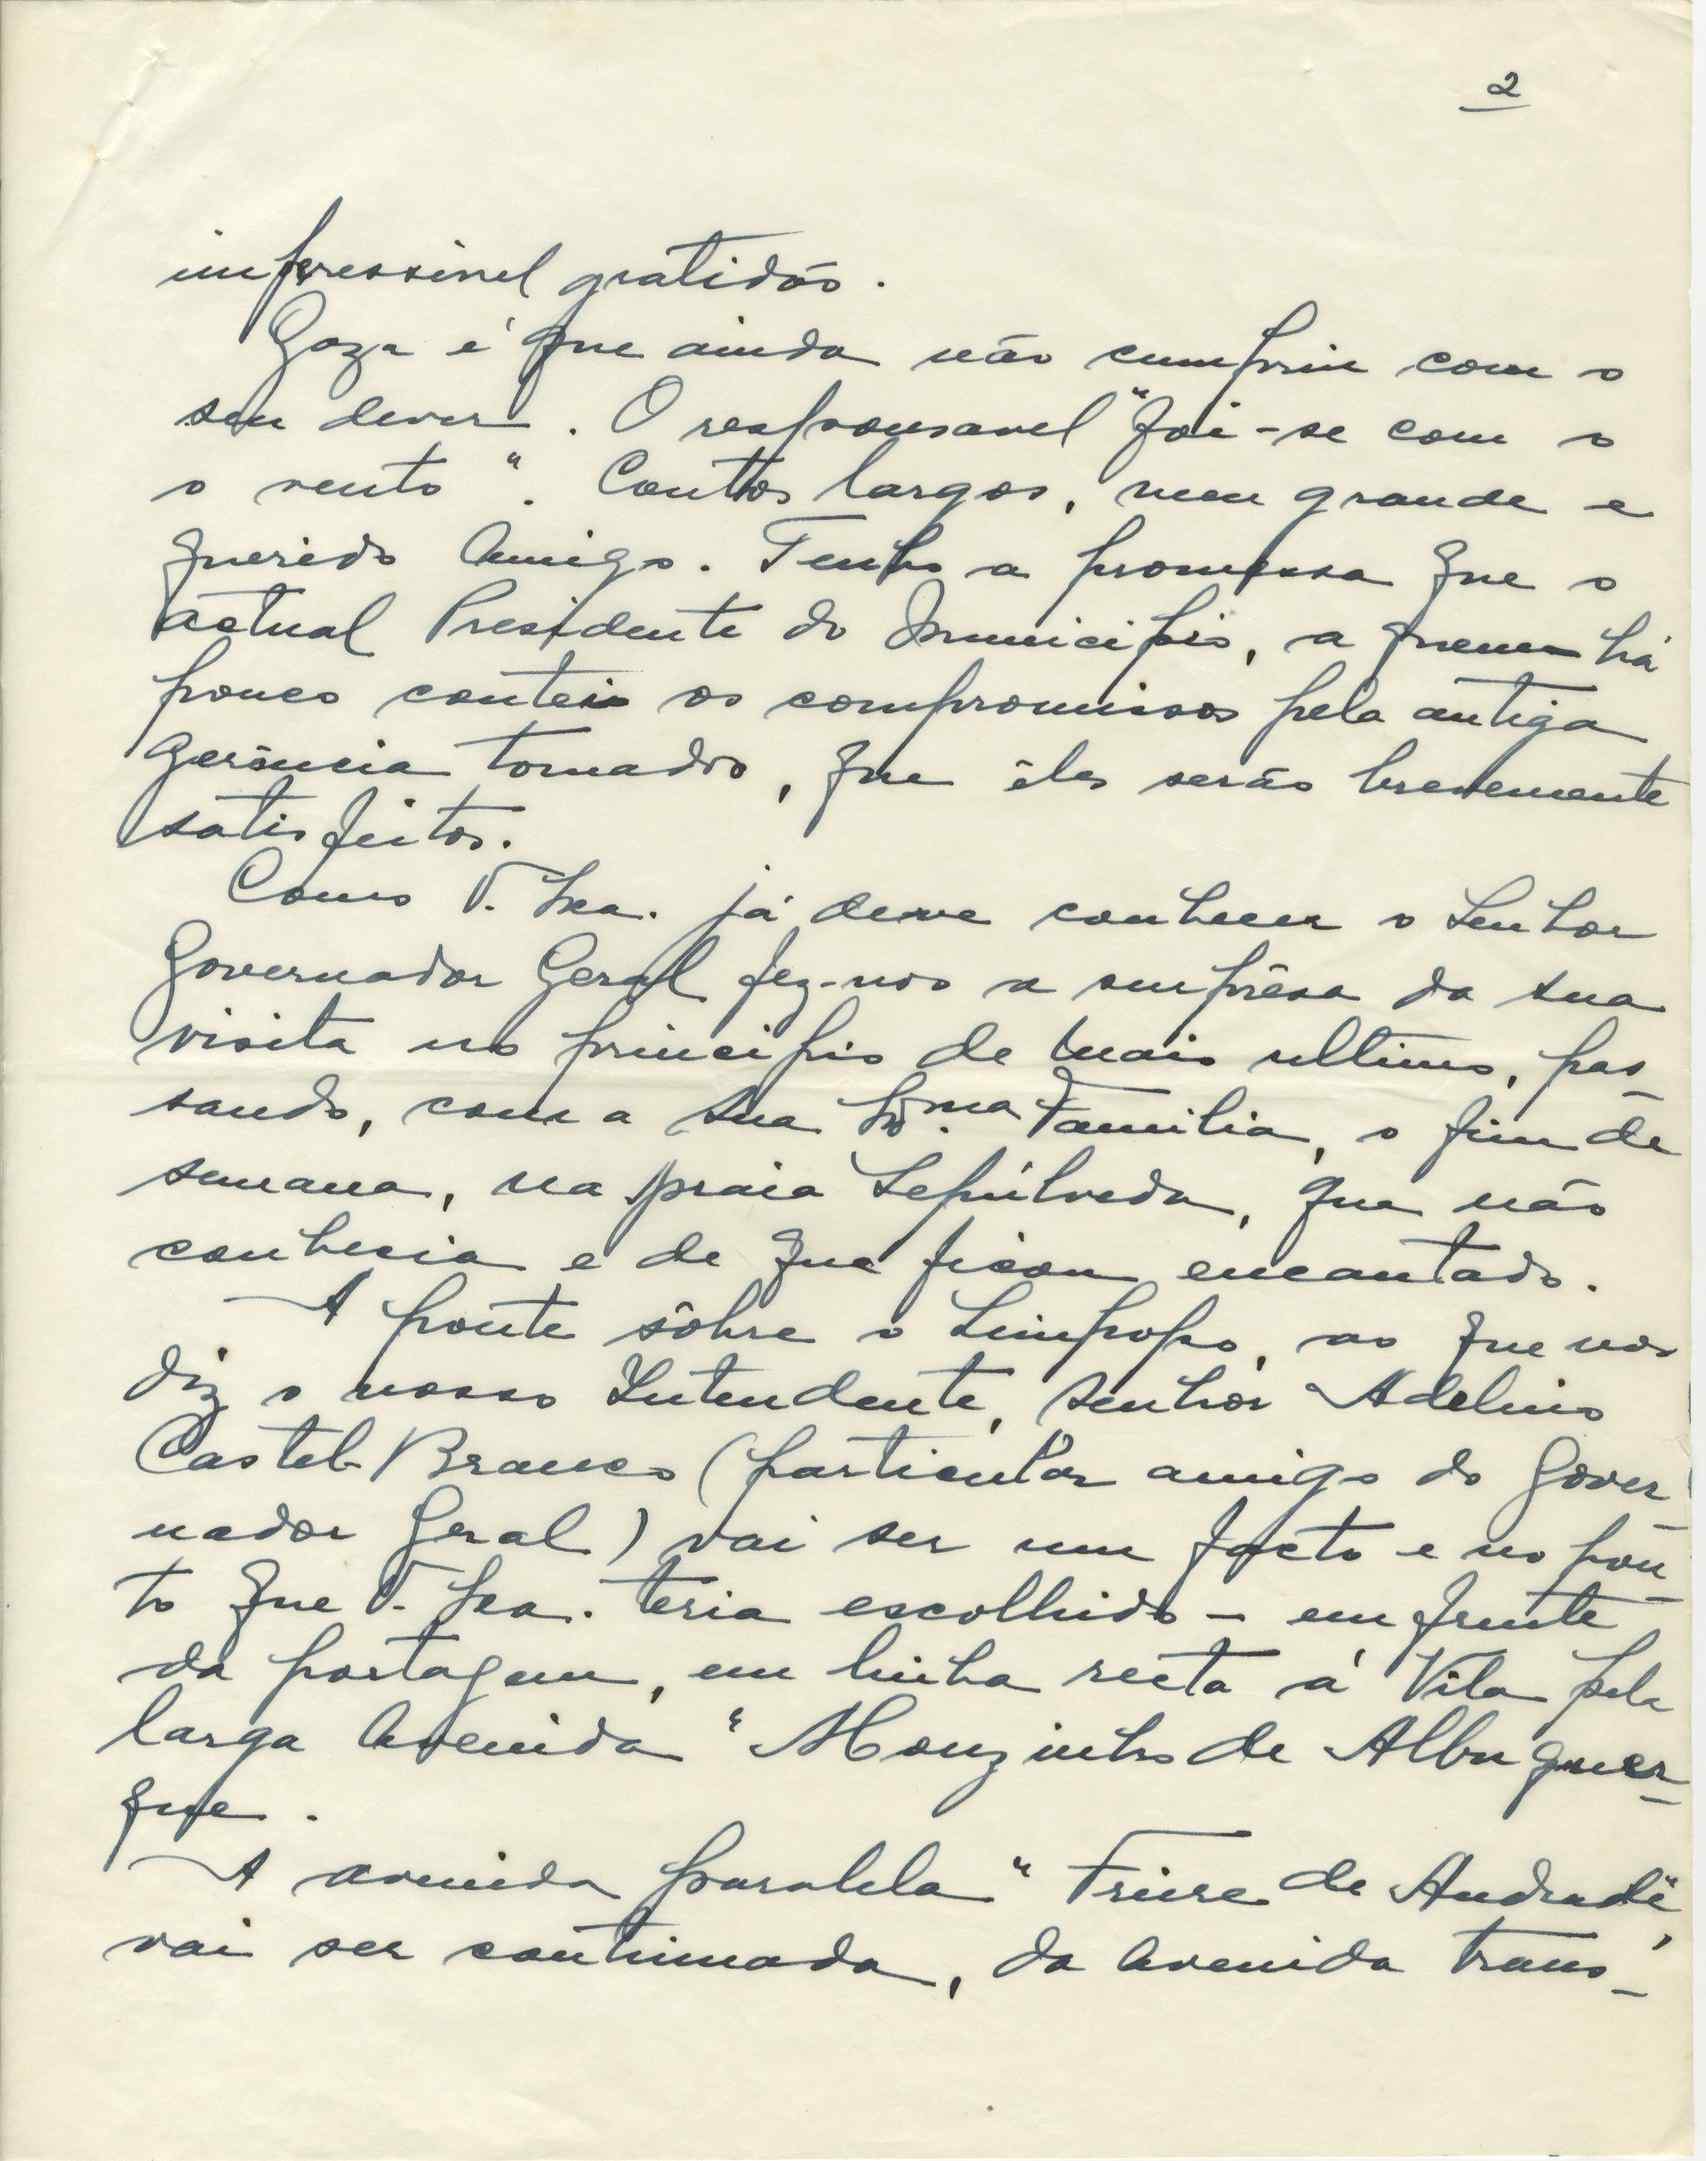 2
impressivel gratidão.
Gaza é que ainda não cumpriu com o
seu dever. O responsavel "foi-se com o
o vento". Contos largos, meu grande e
querido Amigo. Tenho a promessa que o
actual Presidente do Municipio, a quem há
pouco contei os compromissos pela antiga
gerência tomados, que êles serão brevemente
satisfeitos.
Como V. Exa. já deve conhecer o Senhor
Governador Geral fez-nos a surprêsa da sua
visita no principio de Maio ultimo, pas-
sando, com a sua Exma. Familia, o fim de
semana, na praia Sepúlveda, que não
conhecia e de que ficou encantado.
A ponte sôbre o Limpopo, ao que nos
diz o nosso Intendente, Senhor Adelino
Castel-Branco (particular amigo do Gover-
nador Geral) vai ser um facto e no pon-
to que V. Exa. teria escolhido - em frente
da portagem, em linha recta á Vila pela
larga Avenida "Mouzinho de Albuquer-
que.
A avenida paralela "Freire de Andrade",
vai ser continuada, da Avenida trans-